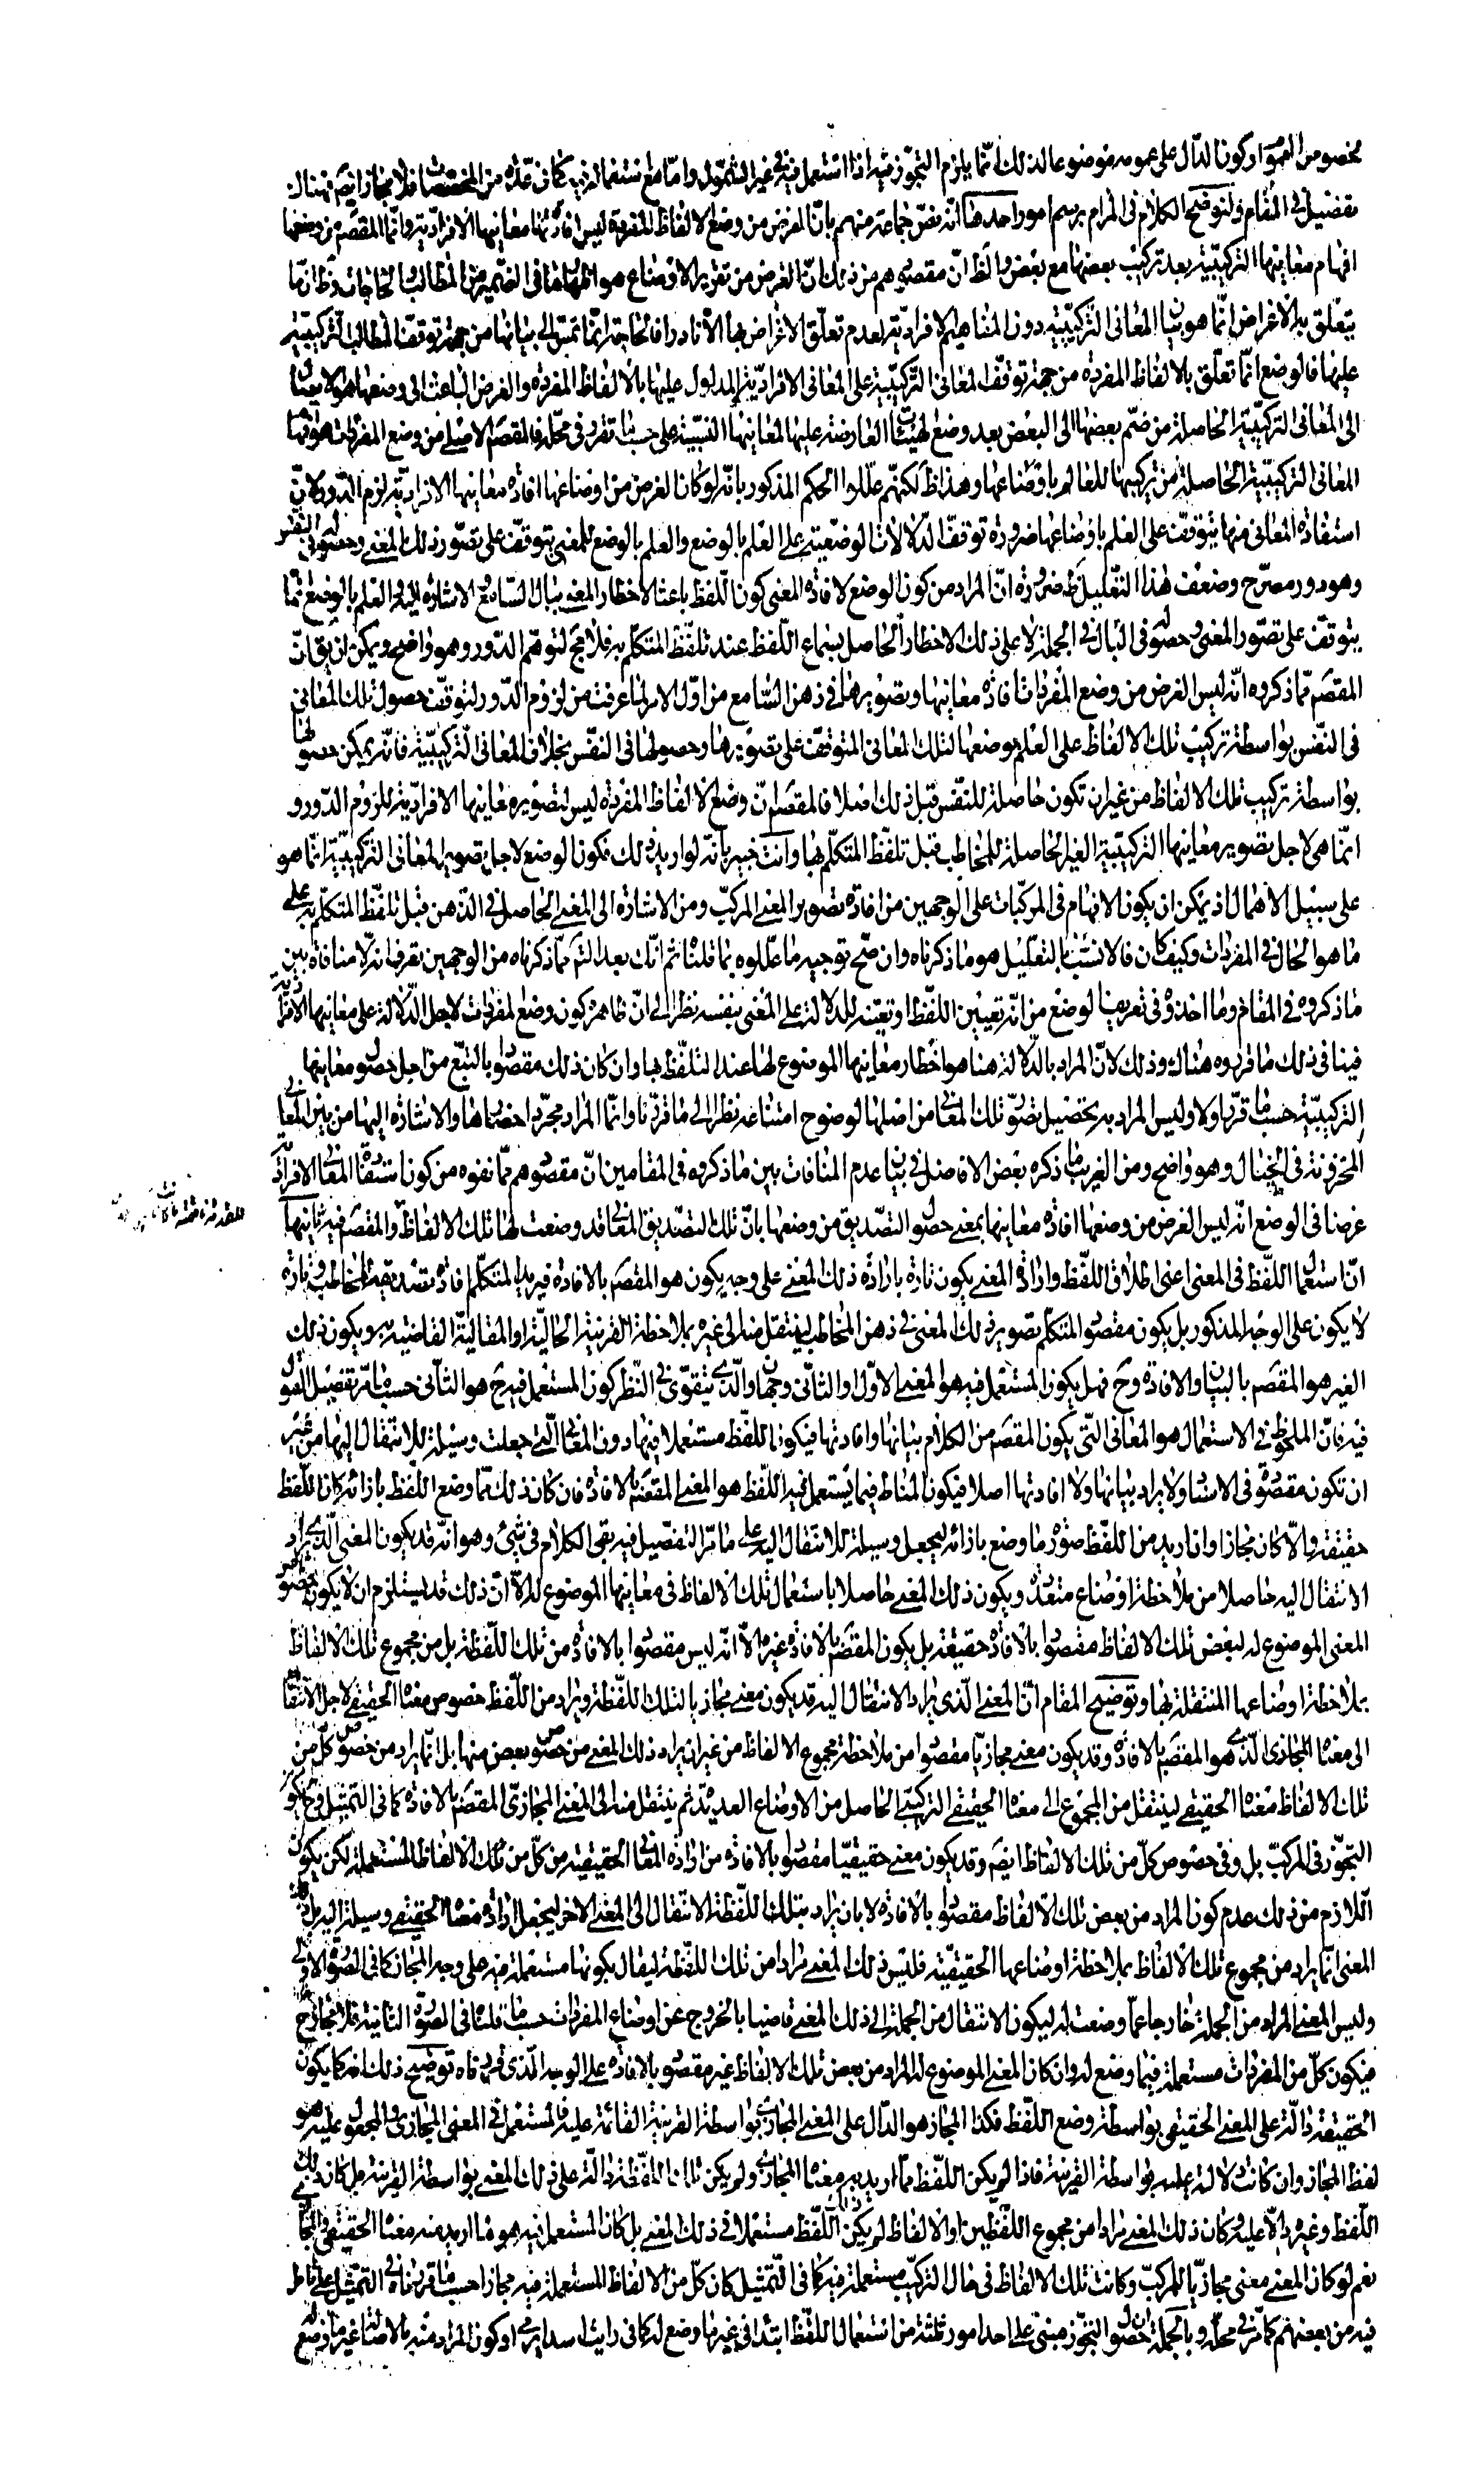 مخصوص العموم اركون الدّال على عمومه موضوعا لذلك انّما يلزم التجوّز فيه اذا استعمل فيه في غير الشمول وامّا مع استعماله فيه كما في عدّة من المخصّصات فلا مجاز ايضم فهناك
تفصيل في المقام ولنوضح الكلام في المرام برسم امور احدها انّه نصّ جماعة منهم بانّ الغرض من وضع الالفاظ المفردة ليس افادتها معانيها الافراديّة وانّما المقصم من وضعها
افهام معانيها التركيبيّة بعد تركيب بعضها مع بعض والظ انّ مقصودهم من ذلك انّ الغرض من تقرير الاوضاع هو افهام ما في الضمير من المطالب والحاجات وظ انّ ما
يتعلّق به الاغراض انّما هو بيان المعاني التركيبيّة دون المفاهيم الافراديّة لعدم تعلّق الاغراض بها الّا نادرا فالحاجة انّما تمسّ الى بيانها من جهة توقّف المطالب التركيبيّة
عليها فالوضع انّما تعلّق بالالفاظ المفردة من جهة توقّف المعاني التركيبيّة على المعاني الافراديّة المدلول عليها بالالفاظ المفردة والغرض الباعث الى وضعها هو الايصال
الى المعاني التركيبيّة الحاصلة من ضمّ بعضها الى البعض بعد وضع الهيئات العارضة عليها لمعانيها النسبيّة على حسب ما تقرر في محلّه فالمقصم الاصلي من وضع المفردات هو افهام
المعاني التركيبيّة الحاصلة من تركيبها للعالم باوضاعها وهذا ظ لكنهم علّلوا الحكم المذكور بانّه لو كان الغرض من اوضاعها افادة معانيها الافراديّة لزم الدّور لانّ
استفادة المعاني منها يتوقّف على العلم باوضاعها ضرورة توقّف الدّلالات الوضعيّة على العلم بالوضع والعلم بالوضع للمعنى يتوقّف على تصوّر ذلك المعنى وحصوله في النفس
وهو دور مصرّح وضعف هذا التعليل ظ ضرورة انّ المراد من كون الوضع لافادة المعنى كون اللّفظ باعثا لاخطار المعنى ببال السّامع الاشارة اليه والعلم بالوضع انّما
يتوقّف على تصوّر المعنى وحصوله في البال في الجملة لا على ذلك الاخطار الحاصل بسماع اللّفظ عند تلفّظ المتكلّم به فلا مجال لتوهّم الدّور وهو واضح ويمكن ان يق انّ
المقصم ممّا ذكروه انّه ليس الغرض من وضع المفردات افادة معانيها وتصويرها في ذهن السّامع من اوّل الامر لما عرفت من لزوم الدّور لتوقّف حصول تلك المعاني
في النّفس بواسطة تركيب تلك الالفاظ على العلم بوضعها لتلك المعاني المتوقّف على تصوّرها وحصولها في النفس بخلاف المعاني التركيبيّة فانّه يمكن حصولها
بواسطة تركيب تلك الالفاظ من غير ان تكون حاصلة للنّفس قبل ذلك اصلا فالمقصم انّ وضع الالفاظ المفردة ليس لتصوير معانيها الافراديّة للزوم الدّور و
انّما هي لاجل تصوير معانيها التركيبيّة الغير الحاصلة للمخاطب قبل تلفّظ المتكلّم بها وانت خبير بانّه لو اريد ذلك فكون الوضع لاجل تصوير المعاني التركيبيّة انّما هو
على سبيل الاهمال اذ يمكن ان يكون الافهام في المركّبات على الوجهين من افادة تصوير المعنى المركّب ومن الاشارة الى المعنى الحاصل في الذّهن قبل تلفّظ المتكلّم به على
ما هو الحال في المفردات وكيف كان فالانسب بالتعليل هو ما ذكرناه وان صحّ توجيه ما علّلوه بما قلنا ثم انّك بعد التامّل فيما ذكرناه من الوجهين تعرف انّه لا منافاة بين
ما ذكروه في المقام وما اخذوه في تعريف الوضع من انّه تعيين اللّفظ او تعيّنه للدلالة على المعنى بنفسه نظرا الى انّ ظاهره كون وضع المفردات لاجل الدّلالة على معانيها الافراديّة
فينافي ذلك ما قرروه هنالك وذلك لانّ المراد بالدّلالة هنا هو اخطار معانيها الموضوع لها عند التلفّظ بها وان كان ذلك مقصودا بالتبع من اجل حصول معانيها
التركيبيّة حسب ما قرّر اولا وليس المراد به تحصيل تصوّر تلك المعاني من اصلها لوضوح امتناعه نظرا الى ما قرّرنا وانّما المراد مجرّد احضارها والاشارة اليها من بين المعاني
المخزونة في الخيال وهو واضح ومن الغريب ما ذكره بعض الافاضل في بيان عدم المنافات بين ما ذكروه في المقامين انّ مقصودهم ممّا نفوه من كون استفادة المعاني الافراديّة
غرضا في الوضع انّه ليس الغرض من وضعها افادة معانيها بمعنى حصول التصديق من وضعها بانّ تلك التصديق المعاني قد وضعت لها تلك الالفاظ والمقصم فيه ثانيها
انّ استعمال اللّفظ في المعنى اعني اطلاق اللّفظ وارادة المعنى يكون تارة بارادة ذلك المعنى على وجه يكون هو المقصم بالافادة فيريد المتكلّم افادة تصديقه للمخاطب وتارة
لا يكون على الوجه المذكور بل يكون مقصود المتكلّم تصوير ذلك المعنى في ذهن المخاطب لينتقل منه الى غيره بملاحظة القرينة الحاليّة او المقاليّة القاضية به ويكون ذلك
الغير هو المقصم بالبيان والافادة وح فهل يكون المستعمل فيه هو المعنى الاوّل او الثاني وجهان والّذي يتقوّى في النّظر كون المستعمل فيه ح هو الثاني حسب ما مرّ تفصيل القول
فيه فانّ الملحوظ في الاستعمال هو المعاني التي يكون المقصم من الكلام بيانها وافادتها فيكون اللّفظ مستعملا فيها دون المعاني الّتي جعلت وسيلة للانتقال اليها من غير
ان تكون مقصودة في الاستعمال ولا يراد بيانها ولا افادتها اصلا فيكون المناط فيما يستعمل فيه اللّفظ هو المعنى المقصم بالافادة فان كان ذلك ممّا وضع اللّفظ بازائه كان اللّفظ
حقيقة والّا كان مجازا وان اريد من اللّفظ صورة ما وضع بازائه ليجعل وسيلة للانتقال اليه على ما مرّ التفصيل فيه بقي الكلام في شيئ وهو انّه قد يكون المعنى الّذي يراد
الانتقال اليه حاصلا من ملاحظة اوضاع متعدّدة ويكون ذلك المعنى حاصلا باستعمال تلك الالفاظ في معانيها الموضوع لها الّا انّ ذلك قد يستلزم ان لا يكون خصوص
المعنى الموضوع له لبعض تلك الالفاظ مقصودا بالافادة حقيقة بل يكون المقصم بالافادة غيره الّا انّه ليس مقصودا بالافادة من تلك اللّفظة بل من مجموع تلك الالفاظ
بملاحظة اوضاعها المتعلّقة بها وتوضيح المقام انّ المعنى الّذي يراد الانتقال اليه قد يكون معنى مجازيا لتلك اللّفظة ويراد من اللّفظ خصوص معناه الحقيقي لاجل الانتقال
الى معناه المجازي الّذي هو المقصم بالافادة وقد يكون معنى مجازيا مقصودا من ملاحظة مجموع الالفاظ من غير ان يراد ذلك المعنى من خصوص بعض منها بل انّما يراد من خصوص كلّ من
تلك الالفاظ معناه الحقيقي لينتقل من المجموع الى معناه الحقيقي التركيبي الحاصل من الاوضاع العديدة ثم ينتقل منه الى المعنى المجازيّ المقصم بالافادة كما في التمثيل وح يكون
التجوّز في المركّب بل وفي خصوص كلّ من تلك الالفاظ ايضم وقد يكون معنى حقيقيّا مقصودا بالافادة من ارادة المعاني الحقيقيّة من كلّ من تلك الالفاظ المستعملة لكن يكون
اللّازم من ذلك عدم كون المراد من بعض تلك الالفاظ مقصودا بالافادة لا بان يراد بتلك اللّفظة الانتقال الى المعنى الاخر ليجعل ارادة معناه الحقيقي وسيلة اليه بل ذلك
المعنى انّما يراد من مجموع تلك الالفاظ بملاحظة اوضاعها الحقيقيّة فليس ذلك المعنى مرادا من تلك اللّفظة ليقال بكونها مستعملة فيه على وجه المجاز كما في الصورة الاولى
وليس المعنى المراد من الجملة خارجا عمّا وضعت له ليكون الانتقال من الجملة الى ذلك المعنى قاضيا بالخروج عن اوضاع المفردات حسب ما قلنا في الصورة الثانية فلا مجاز ح
فيكون كلّ من المفردات مستعملة فيما وضع له وان كان المعنى الموضوع له المراد من بعض تلك الالفاظ غير مقصود بالافادة على الوجه الّذي قررناه توضيح ذلك انّه كما يكون
الحقيقة دالّة على المعنى الحقيقي بواسطة وضع اللّفظ فكذا المجاز هو الدّال على المعنى المجازي بواسطة القرينة القائمة عليه فالمستعمل في المعنى المجازي والمجعول عليه هو
لفظ المجاز وان كانت دلالته عليه بواسطة القرينة فاذا لم يكن اللّفظ ممّا اريد به معناه المجازي ولم يكن تلك اللّفظة دالّة على ذلك المعنى بواسطة القرينة بل كان ذلك
اللّفظ وغيره دالّا عليه وكان ذلك المعنى مرادا من مجموع اللّفظين او الالفاظ لم يكن ذلك اللّفظ مستعملا في ذلك المعنى بل كان المستعمل فيه هو ما اريد منه معناه الحقيقي او المجازي
نعم لو كان المعنى معنى مجازيّا للمركّب وكانت تلك الالفاظ في حال التركيب مستعملة فيه كما في التمثيل كان كلّ من الالفاظ المستعملة فيه مجازا حسب ما قررناه في التمثيل على ما ظهر
فيه من بعضهم كما مرّ في محلّه وبالجملة انّ حصول التجوّز مبنيّ على احد امور ثلثة من استعمال اللّفظ ابتداء في غير ما وضع له كما في رايت اسدا يرمي او كون المراد منه بالاصالة غير ما وضع له